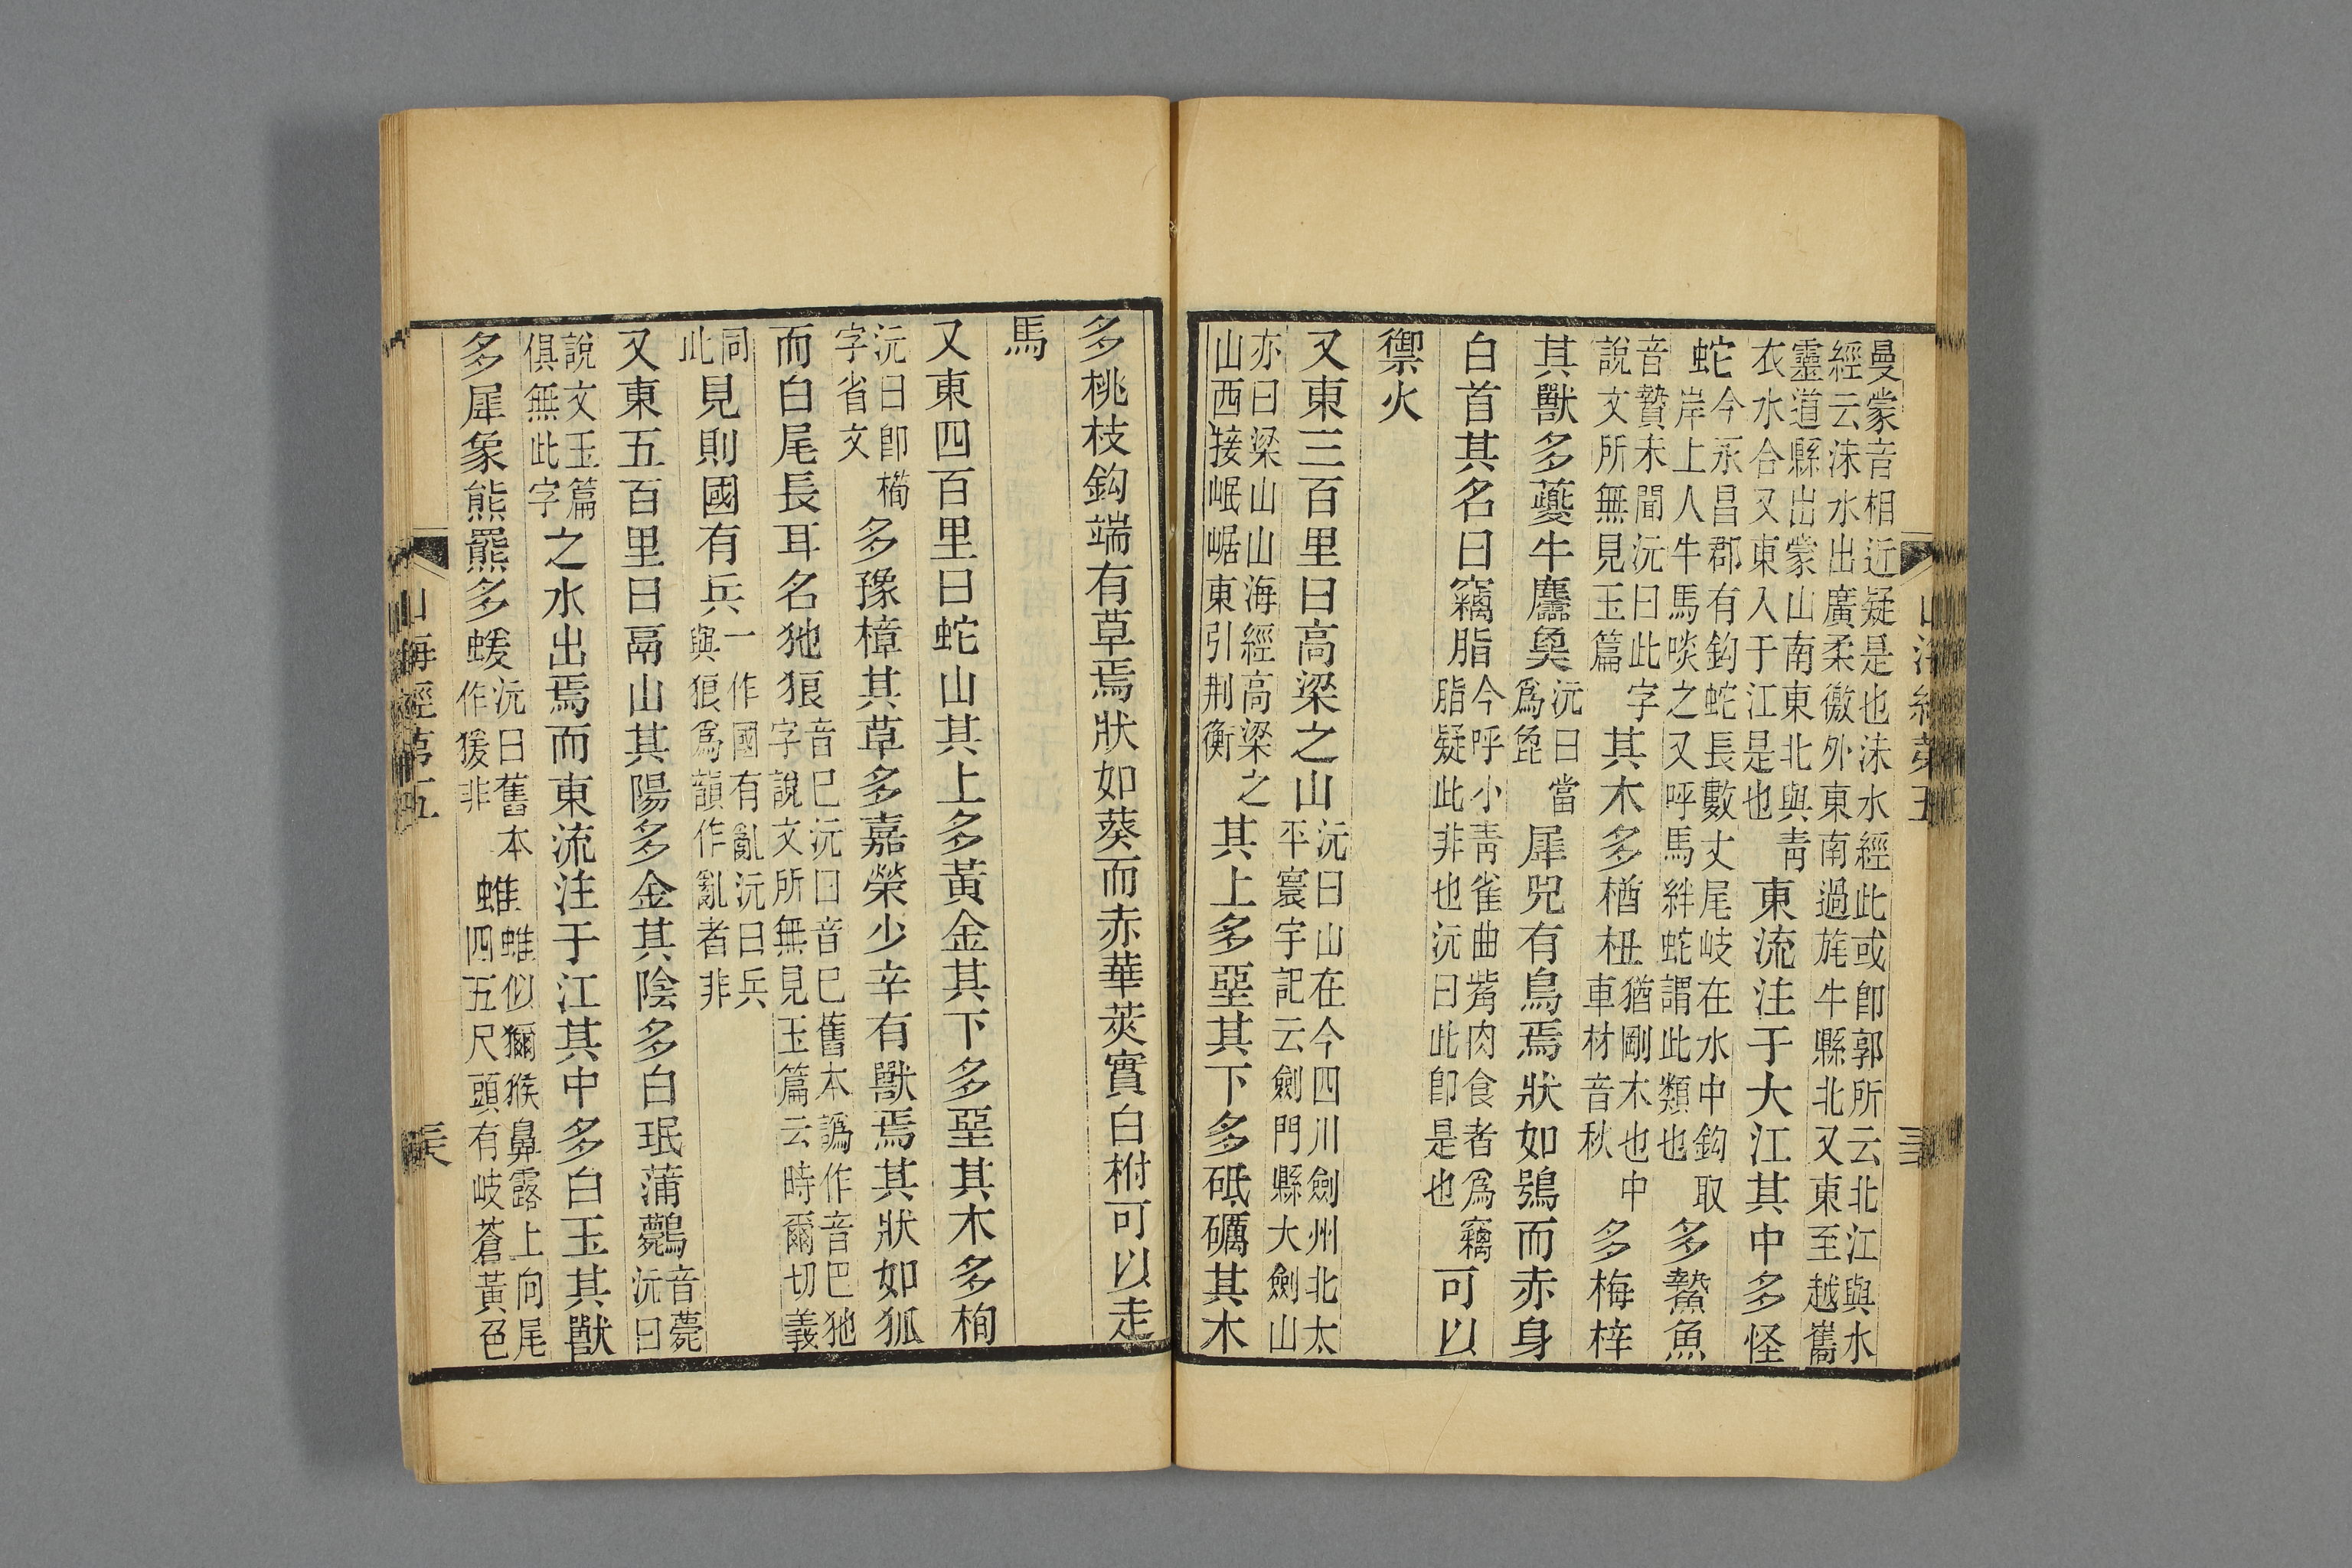 曼蒙音相近疑是也沫水經此或卽郭所云北江與水
經云沫水出廣柔徼外東南過旄牛縣北又東至越嶲
靈道縣出蒙山南東北與青
衣水合又東入于江是也
東流注于大江其中多怪
蛇
今永昌郡有鈎蛇長數丈尾岐在水中鈎取
岸上人牛馬啖之又呼馬絆蛇謂此類也
多䲀魚
音贄未聞沅曰此字
說文所無見玉篇
其木多楢杻
猶剛木也中
車材音秋
多梅梓
其獸多夔牛麢㚟
沅曰當
爲㲋
犀兕有鳥焉狀如鴞而赤身
白首其名曰竊脂
今呼小靑雀曲觜肉食者爲竊
脂疑此非也沅曰此卽是也
可以
禦火
又東三百里曰高梁之山
沅曰山在今四川劍州北太
平寰宇記云劍門縣大劍山
亦曰梁山山海經高梁之
山西接岷崌東引荆衡
其上多堊其下多砥礪其木
山海經第五
多桃枝鈎端有草焉狀如葵而赤華莢實白柎可以走
馬
又東四百里曰蛇山其上多黃金其下多堊其木多栒
沅曰卽
字省文
多豫樟其草多嘉榮少辛有獸焉其狀如狐
而白尾長耳名㹢狼
音巳沅曰音巳舊本譌作音巴㹢
字說文所無見玉篇云時爾切義
同
此
見則國有兵
一作國有亂沅曰兵
與狼爲韻作亂者非
又東五百里曰鬲山其陽多金其陰多白珉蒲𪇆
音薨
沅曰
說文玉篇
俱無此字
之水出焉而東流注于江其中多白玉其獸
多犀象熊羆多蝯
沅曰舊本
作猨非
蜼
蜼似獼猴鼻露上向尾
四五尺頭有岐蒼黃色
山海經第五